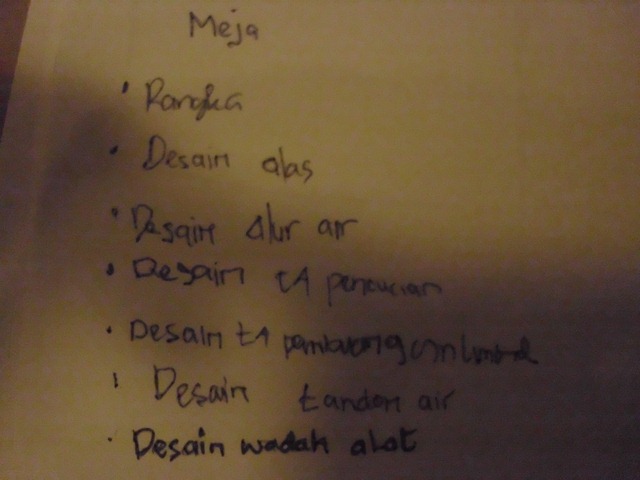 Meja
• Rangka
• Desain alas
• Desain Alur air
• Desain tA pencucian
• Desain tA pembuangan limbah
• Desain tandon air
• Desain wadah alat